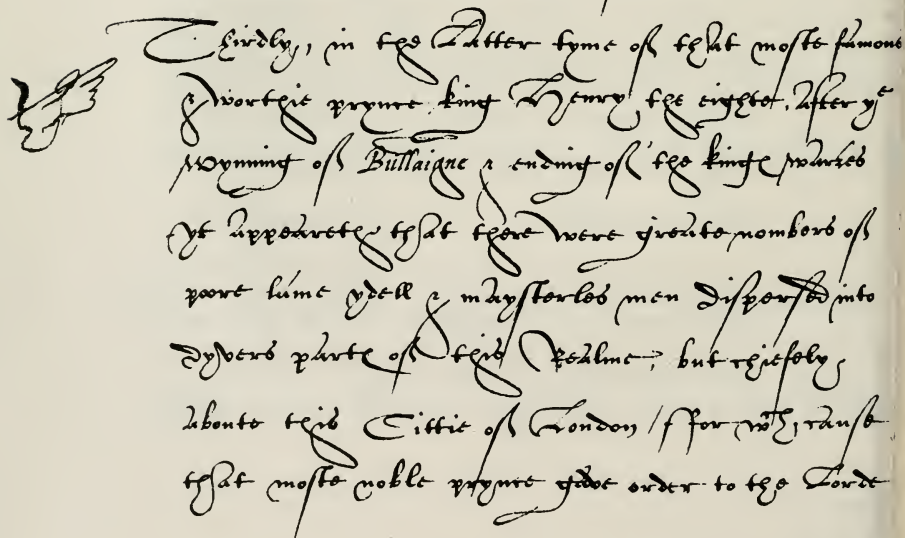 Thirdly, in the Latter tyme of that moste famous
& worthie prynce king Henry the eighte, After ye
wynning of Bullaigne & ending of the kinges warres
yt Appeareth that there were greate nombers of
poore lame ydell & maysterles men dispersed into
dyvers partes of this Realme, but chiefely,
aboute this Cittie of London / ffor wch cause
that moste noble prynce gave order to the Lorde